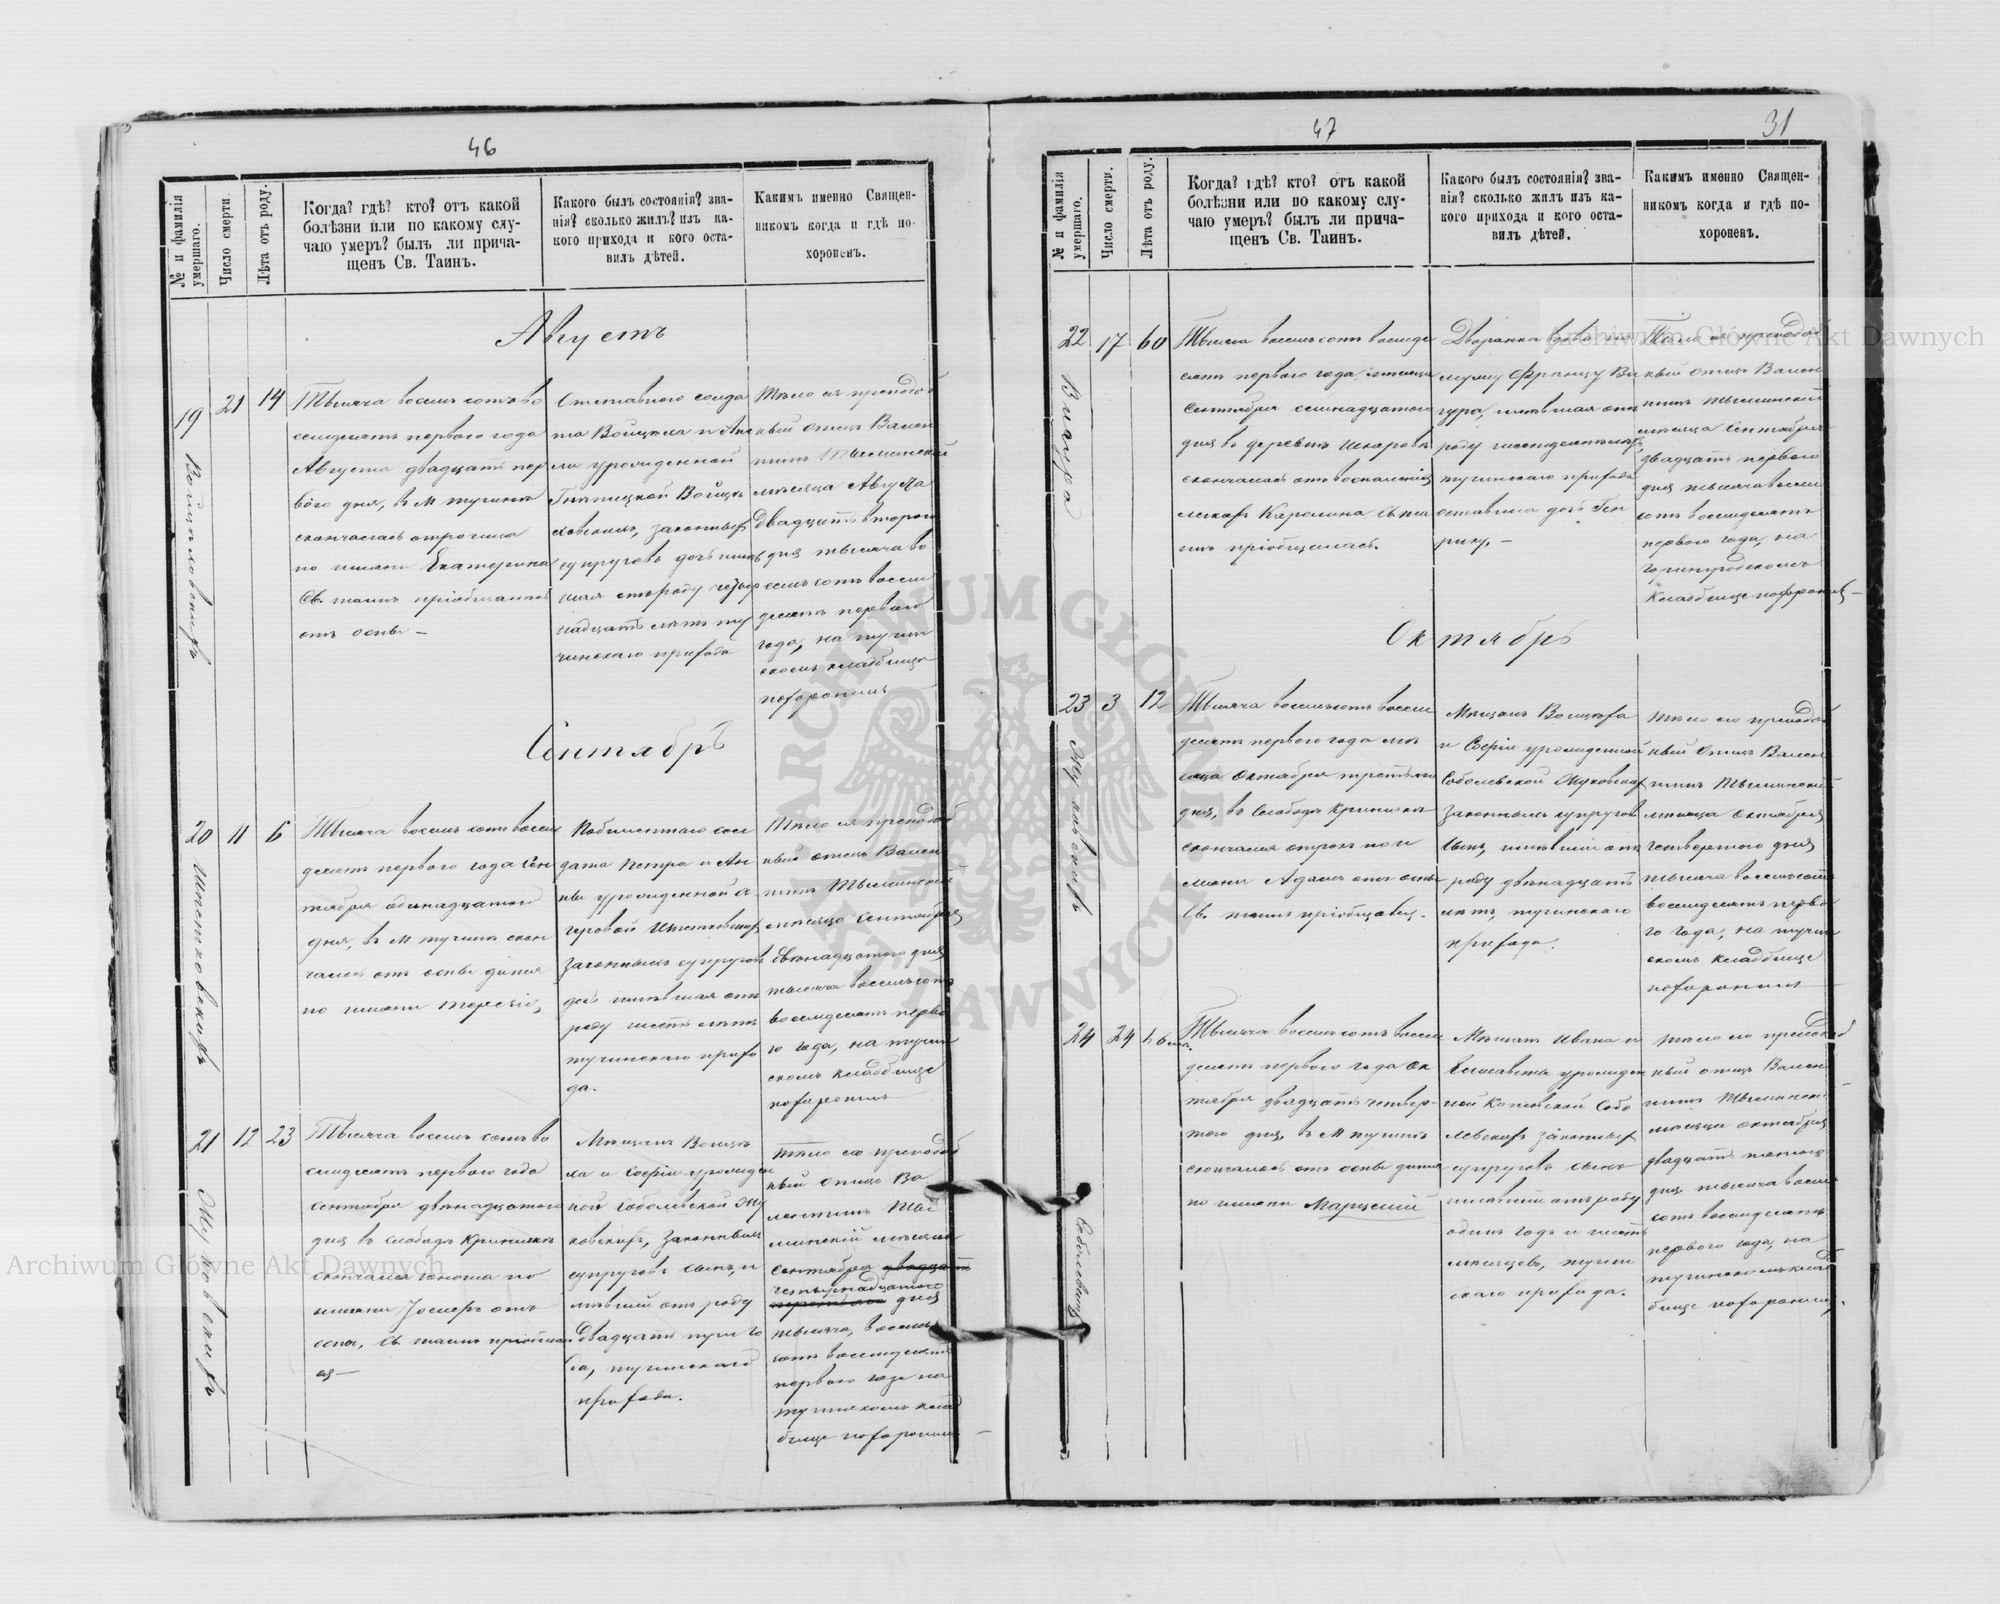 46
№ и фамилія умершаго.
Число смерти
Лѣта отъ роду.
Когда? гдѣ? кто? отъ какой
болѣзни или по какому слу-
чаю умеръ? былъ ли прича-
щенъ Св. Таинъ.
Какого былъ состоянія? зва-
нія? сколько жилъ? изъ ка-
кого прихода и кого оста-
вилъ дѣтей.
Какимъ именно Священ-
никомъ когда и гдѣ по-
хороненъ.
Августъ
19
21
14
Тысяча восемь сотъ во
семдесятъ первого года
Августа двадцать пер
вого дня, в М тучинѣ
скончалась отрочица
по имени Екатерина
Св. таинъ пріобщалась
отъ оспы —
Отставного солда
та Войцѣха и Ан
ли урожденной
законныхъ
супруговъ дочь имѣв
шая отъ роду четыр
надцать лѣтъ ту
чинскаго прихода
Тѣло ея преподоб
ный отецъ Вален
тинъ Тыминскій
мѣсяца Августа
двадцать второго
дня тысяча во
семь сотъ восем
десятъ первого
года, на тучин
скомъ кладбище
похоронилъ
Сентябрь
20
11
6
Тысяча восемь сотъ восем
десятъ первого года Сен
тября одинадцатого
дня, въ М тучинѣ скон
чалось отъ оспы дитя
по имени Терезія,
сол
дата Петра и Ан
ны урожденной
законныхъ супруговъ
дочь имѣвшая отъ
роду шесть лѣтъ
тучинскаго прихо
да.
Тѣло ея преподоб
ный отецъ Вален
тинъ Тыминскій
мѣсяца Сентября
двѣнадцатого дня
тысяча восемь сотъ
восемдесятъ перво
го года, на тучин
скомъ кладбище
похоронилъ
21
12
23
Жуковскихъ
Тысяча восемь сотъ во
семдесятъ первого года
сентября двѣнадцатого
дня въ слободѣ Кринички
скончался юноша по
имени Іосифъ отъ
оспы, Св таинъ пріобщал
ся —
Мѣщанъ Войцѣ
ха и Софіи урожден
ной Соболевской Жу
ковскихъ, законныхъ
супруговъ сынъ, и
мѣвшій отъ роду
двадцать три го
да, тучинскаго
прихода.
Тѣло его преподоб
ный отецъ Ва
лентинъ Ты
минскій мѣсяца
сентября двадцать
четырнадцатого
дня
тысяча, восемь
сотъ восемдесятъ
первого года на
тучинскомъ клад
бище похоронилъ
47
31
№ и фамилія умершаго.
Число смерти.
Лѣта отъ роду.
Когда? гдѣ? кто? отъ какой
болѣзни или по какому слу-
чаю умеръ? былъ ли прича-
щенъ Св. Таинъ.
Какого былъ состоянія? зва-
нія? сколько жилъ изъ ка-
кого прихода и кого оста-
вилъ дѣтей.
Какимъ именно Священ-
никомъ когда и гдѣ по-
хороненъ.
22
17
60
Вигура
Тысяча восемь сотъ восемде
сятъ первого года мѣсяца
Сентября семнадцатого
дня въ деревнѣ
скончалась отъ воспаленія
легкахъ Каролина Св та
инъ пріобщалась.
Дворянка вдова по
мужу Францу Ви
гура, имѣвшая отъ
роду шестдесятъ лѣтъ,
тучинскаго прихода
оставила дочь Ген
рику. —
Тѣло ея преподоб
ный отецъ Вален
тинъ Тыминскій
мѣсяца Сентября
двадцать первого
дня тысяча восемь
сотъ восемдесятъ
первого года, на
кладбище похоронилъ —
Октябрь
23
3
12
Жуковскихъ
Тысяча восемь сотъ восем
десятъ первого года мѣ
сяца Октября третьяго
дня, въ Слободѣ Кринички
скончался отрокъ по и
мени Адамъ отъ оспы
Св. таинъ пріобщавш.
Мѣщанъ Войцѣха
и Софіи урожденной
Соболевской Жуковскихъ
законныхъ супруговъ
сынъ, имѣвшій отъ
роду двѣнадцать
лѣтъ, тучинскаго
прихода.
Тѣло его преподоб
ный отецъ Вален
тинъ Тыминскій
мѣсяца Октября
четвертого дня
тысяча восемь сотъ
восемдесятъ перво
го года, на тучин
скомъ кладбище
похоронилъ
24
24
1 6 мѣс.
Соболевскихъ
Тысяча восемь сотъ восем
десятъ первого года Ок
тября двадцать четвер-
того дня, въ М тучинѣ
скончалось отъ оспы дитя
по имени Марцелій
Мѣщанъ Ивана и
Елисаветы урожден
ной Собо
левскихъ законныхъ
супруговъ сынъ
имѣвшій отъ роду
одинъ годъ и шесть
мѣсяцевъ, тучин
скаго прихода.
Тѣло его преподоб
ный отецъ Вален
тинъ Тыминскій
мѣсяца октября
двадцать пятого
дня тысяча восемь
сотъ восемдесятъ
первого года, на
тучинскомъ клад
бище похоронилъ.
Archiwum Główne Akt Dawnych
Archiwum Główne Akt Dawnych
ARCHIWUM GŁÓWNE AKT DAWNYCH